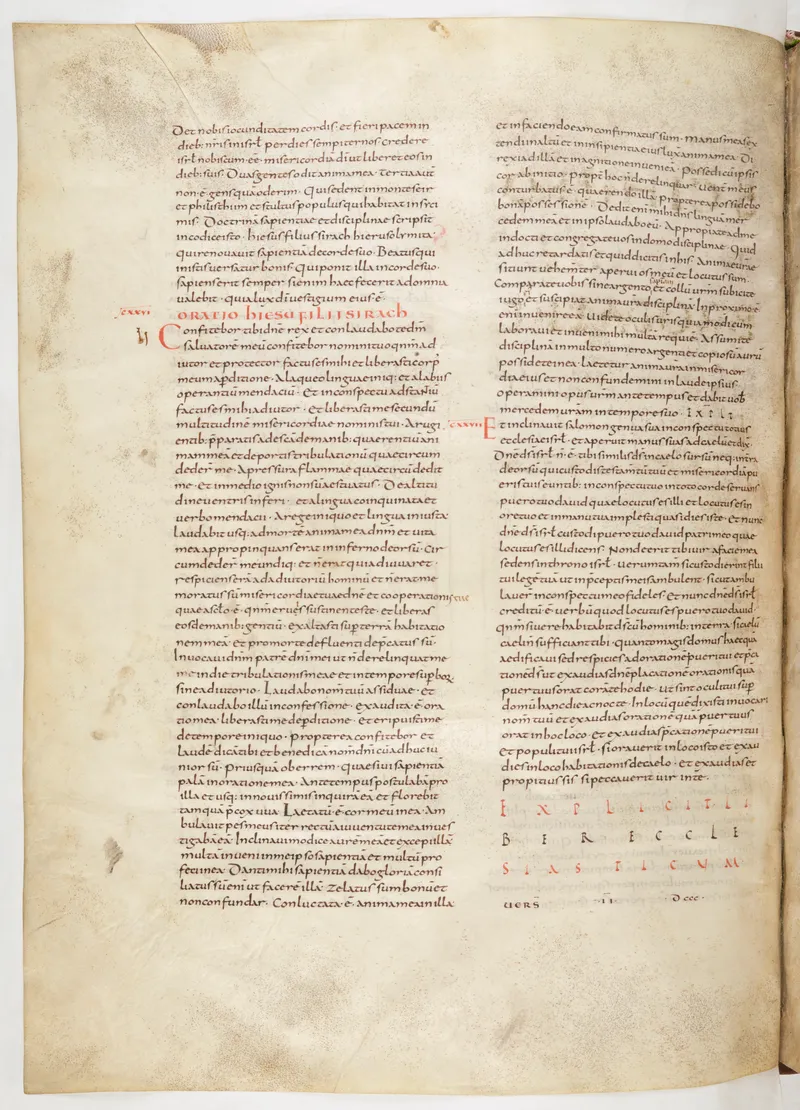 Det nobis iocunditatem cordis· et fieri pacem in
dieb; nr̄is in isrł per dies sempiternos· credere
isrł nobiscum· ēē· misericordiā dī ut liberet eos in
dieb; suis· Duas gentes odit anima mea· tertia aut̄
non ē gens quā oderim· Qui sedent in monte seir
et philisthim et stultus populus qui habitat in sici
mis· Doctrinā sapientiae et disciplinae scripsit
in codice isto· hiesus filius sirach hierusolymita·
qui renouauit sapientiā de corde suo· Beatus qui
in istis uersatur bonis· Qui ponit illa in corde suo·
sapiens erit semper si enim haec fecerit ad omnia
ualebit· quia lux dī uestigium eius ē·
cxxvi· ORATIO hIESU FILII SIRACh
Confitebor tibi dn̄e rex et conlaudabo te dm̄
saluatorē meū confitebor nomini tuo qnm̄ ad
iutor et protector factus es mihi et liberasti corp
meum a pditione· A laqueo linguae iniq; et a labiis
operantiū mendaciū· Et in conspectu adstantiū
factus es mihi adiutor· et liberasti me secundū
multitudinē misericordiae nominis tui· A rugi
entib; pparatis ad escā de manib; quaerentiū ani
mam meā et de portis tribulationū quae circum
dederт me· A pressura flammae quae circūdedit
me· Et in medio ignis non sū aestuatus· De altitu
dine uentris inferi· et a lingua coinquinata et
uerbo mendacii· A rege iniquo et lingua iniusta·
laudabit usq; ad mortē anima mea dnm̄ et uita
mea appropinquans erat in inferno deorsū· Cir
cumdederт me undiq; et n̄ erat qui adiuuaret·
respiciens erā ad adiutoriū hominū et n̄ erat me
moratus sū misericordiae tuae dn̄e et cooperationis tuae
quae a sc̄lo ē· qnm̄ erues sustinentes te· et liberas
eos de manib; gentiū· exaltasti sup terrā habitatio
nem meā· et pro morte defluenti depcatus sū·
Inuocaui dnm̄ patrē dn̄i mei ut n̄ derelinquat me
in die tribulationis meae et in tempore suphoꝝ
sine adiutorio· Laudabo nom̄ tuū assiduae· et
conlaudabo illū in confessione· exaudita ē ora
tio mea· liberasti me de pditione· et eripuisti me
de tempore iniquo· propterea confitebor et
laudē dicā tibi et benedicā nom̄ dn̄i cū adhuc iu
nior sū· priusquā oberrem· quaesiui sapientiā
palā in oratione mea· Ante tempus postulabā pro
illa et usq; in nouissimis inquirā eā et florebit
tamquā pcox uua· Laetatū ē cor meū in ea· Am
bulauit pes meus iter rectū a iuuentute mea inues
tigabā eā· Inclinaui modice aurē meā et excepi illā·
multā inueni in me ipso sapientiā et multū pro
feci in ea· Danti mihi sapientiā dabo gloriā consi
liatus sū eni ut facerē illā· Zelatus sum bonū et
non confundar· Conluctata ē anima mea in illa·
et in faciendo eam confirmatus sum· manus meas ex
tendi in altū et in insipientia eius luxit anima mea· Di
rexi ad illā et in agnitione inueni eā· Possedi cū ipsis
cor ab initio· propt̄ hoc n̄ derelinquar· uent̄ meus
conturbatus ē· quaerendo illā· propterea possidebo
bonā possessionē· Dedit eni mihi dn̄s linguā mer
cedem meā et in ipso laudabo eū· Appropiate ad me
indocti et congregate uos in domo disciplinae· Quid
adhuc retardatis et quid dicitis in his· Animae ur̄ae
sitiunt uehemter aperui os meū et locutus sum·
Comparate uobis sine argento· et collū urm̄ subicite
iugo et suscipiat anima ur̄a disciplinā· In proximo ē
eni inuenire eā· Uidete oculis ur̄is quia modicum
laboraui et inueni mihi multā requiē· Assumite
disciplinā in multo numero argenti et copiosū aurū
possidete in ea· laetetur anima ur̄a in misericor
dia eius et non confundemini in laude ipsius·
Operamini opus ur̄m ante tempus et dabit uob̄
mercedem ur̄am in tempore suo· EXPLI·
cxxvii· Et inclinauit salomon genua sua in conspectu totius
ecclesiae isrł· et aperuit manus suas ad caelū et dix̄·
Dn̄e ds̄ isrł n̄ ē tibi similis ds̄ in caelo sursū neq; in t̄ra
deorsū qui custodis testam̄tū tuū et misericordiā pu
eris tuis euntib; in conspectu tuo in toto corde seruiens
puero tuo dauid quae locutus es illi et locutus es in
ore tuo et in manu tua implesti quasi dies iste· et nunc
dn̄e ds̄ isrł custodi puero tuo dauid patri meo quae
locutus es illi dicens· Non deerit tibi uir a facie mea
sedens in throno isrł· uerumtam̄ si custodierint filii
tui legē tuā ut in pceptis meis ambulent· sicut ambu
lauer in conspectu meo fideles· et nunc dn̄e ds̄ isrł
creditū ē uerbū quod locutus es puero tuo dauid·
qnm̄ si uere habitabit ds̄ cū hominib; in terra· si caelū
caeli n̄ sufficiant tibi· quanto magis domus haec quā
aedificaui sed respicies ad orationē pueri tui et pca
tionē d sut exaudias dn̄e placatione orationis quā
puer tuus orat corā te hodie· ut sint oculi tui sup
domū hanc die ac nocte· In locū quē dixisti inuocari
nom̄ tuū et exaudias orationē quā puer tuus
orat in hoc loco· et exaudias pcationē pueri tui
et populi tui isrł· si orauerit in loco isto et exau
dies in loco habitationis de caelo· et exaudias et
propitius sis si peccauerit uir in te·
EXPLICIT LI
BER ECCLE
SIASTICUM
UERS̄ ·II· DCCC·